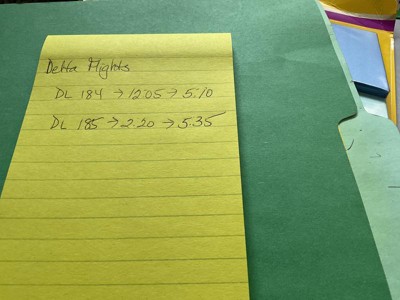 Delta Flights
DL 184 → 12:05 → 5.10
DL 185 → 2.20 → 5.35